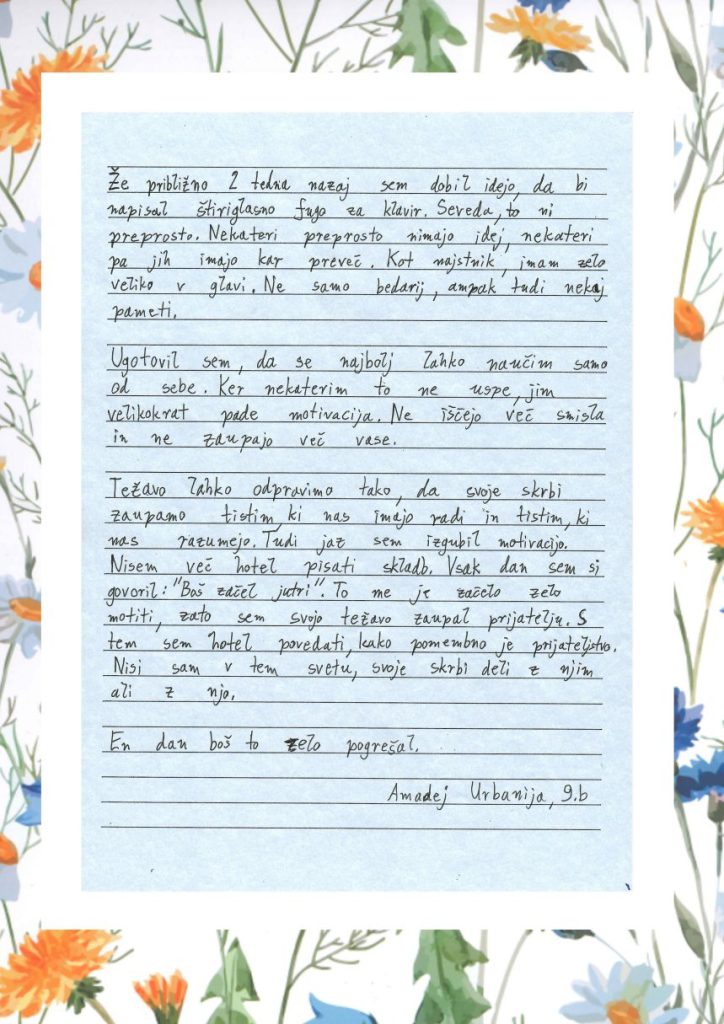 Že približno 2 tedna nazaj sem dobil idejo, da bi
napisal štiriglasno fugo za klavir. Seveda, to ni
preprosto. Nekateri preprosto nimajo idej, nekateri
pa jih imajo kar preveč. Kot najstnik, imam zelo
veliko v glavi. Ne samo bedarij, ampak tudi nekaj
pameti.
Ugotovil sem, da se najbolj lahko naučim samo
od sebe. Ker nekaterim to ne uspe, jim
velikokrat pade motivacija. Ne iščejo več smisla
in ne zaupajo več vase.
Težavo lahko odpravimo tako, da svoje skrbi
zaupamo tistim, ki nas imajo radi in tistim, ki
nas razumejo. Tudi jaz sem izgubil motivacijo.
Nisem več hotel pisati skladb. Vsak dan sem si
govoril: "Boš začel jutri". To me je začelo zelo
motiti, zato sem svojo težavo zaupal prijatelju. S
tem sem hotel povedati, kako pomembno je prijateljstvo.
Nisi sam v tem svetu, svoje skrbi deli z njim
ali z njo.
En dan boš to zelo pogrešal.
Amadej Urbanija, 9.b